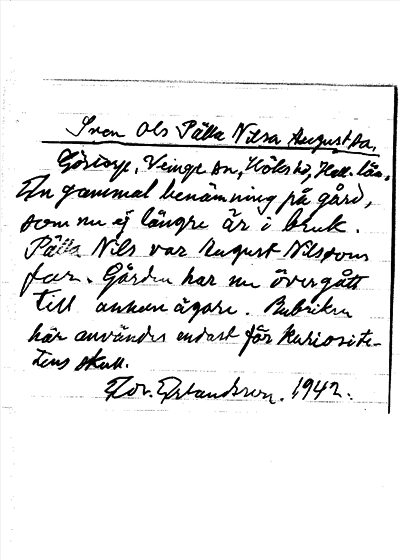 Sven Ols Pälla Nilsa Augusta,
Göstorp, Veinge sn, Höks hd, Hall. län.
En gammal benämning på gård,
som nu ej längre är i bruk.
Pälla Nils var August Nilssons
far. Gården har nu övergått
till annan ägare. Rubriken
här användes endast för kuriosite-
tens skull.
Edv. Erlandsson. 1942.